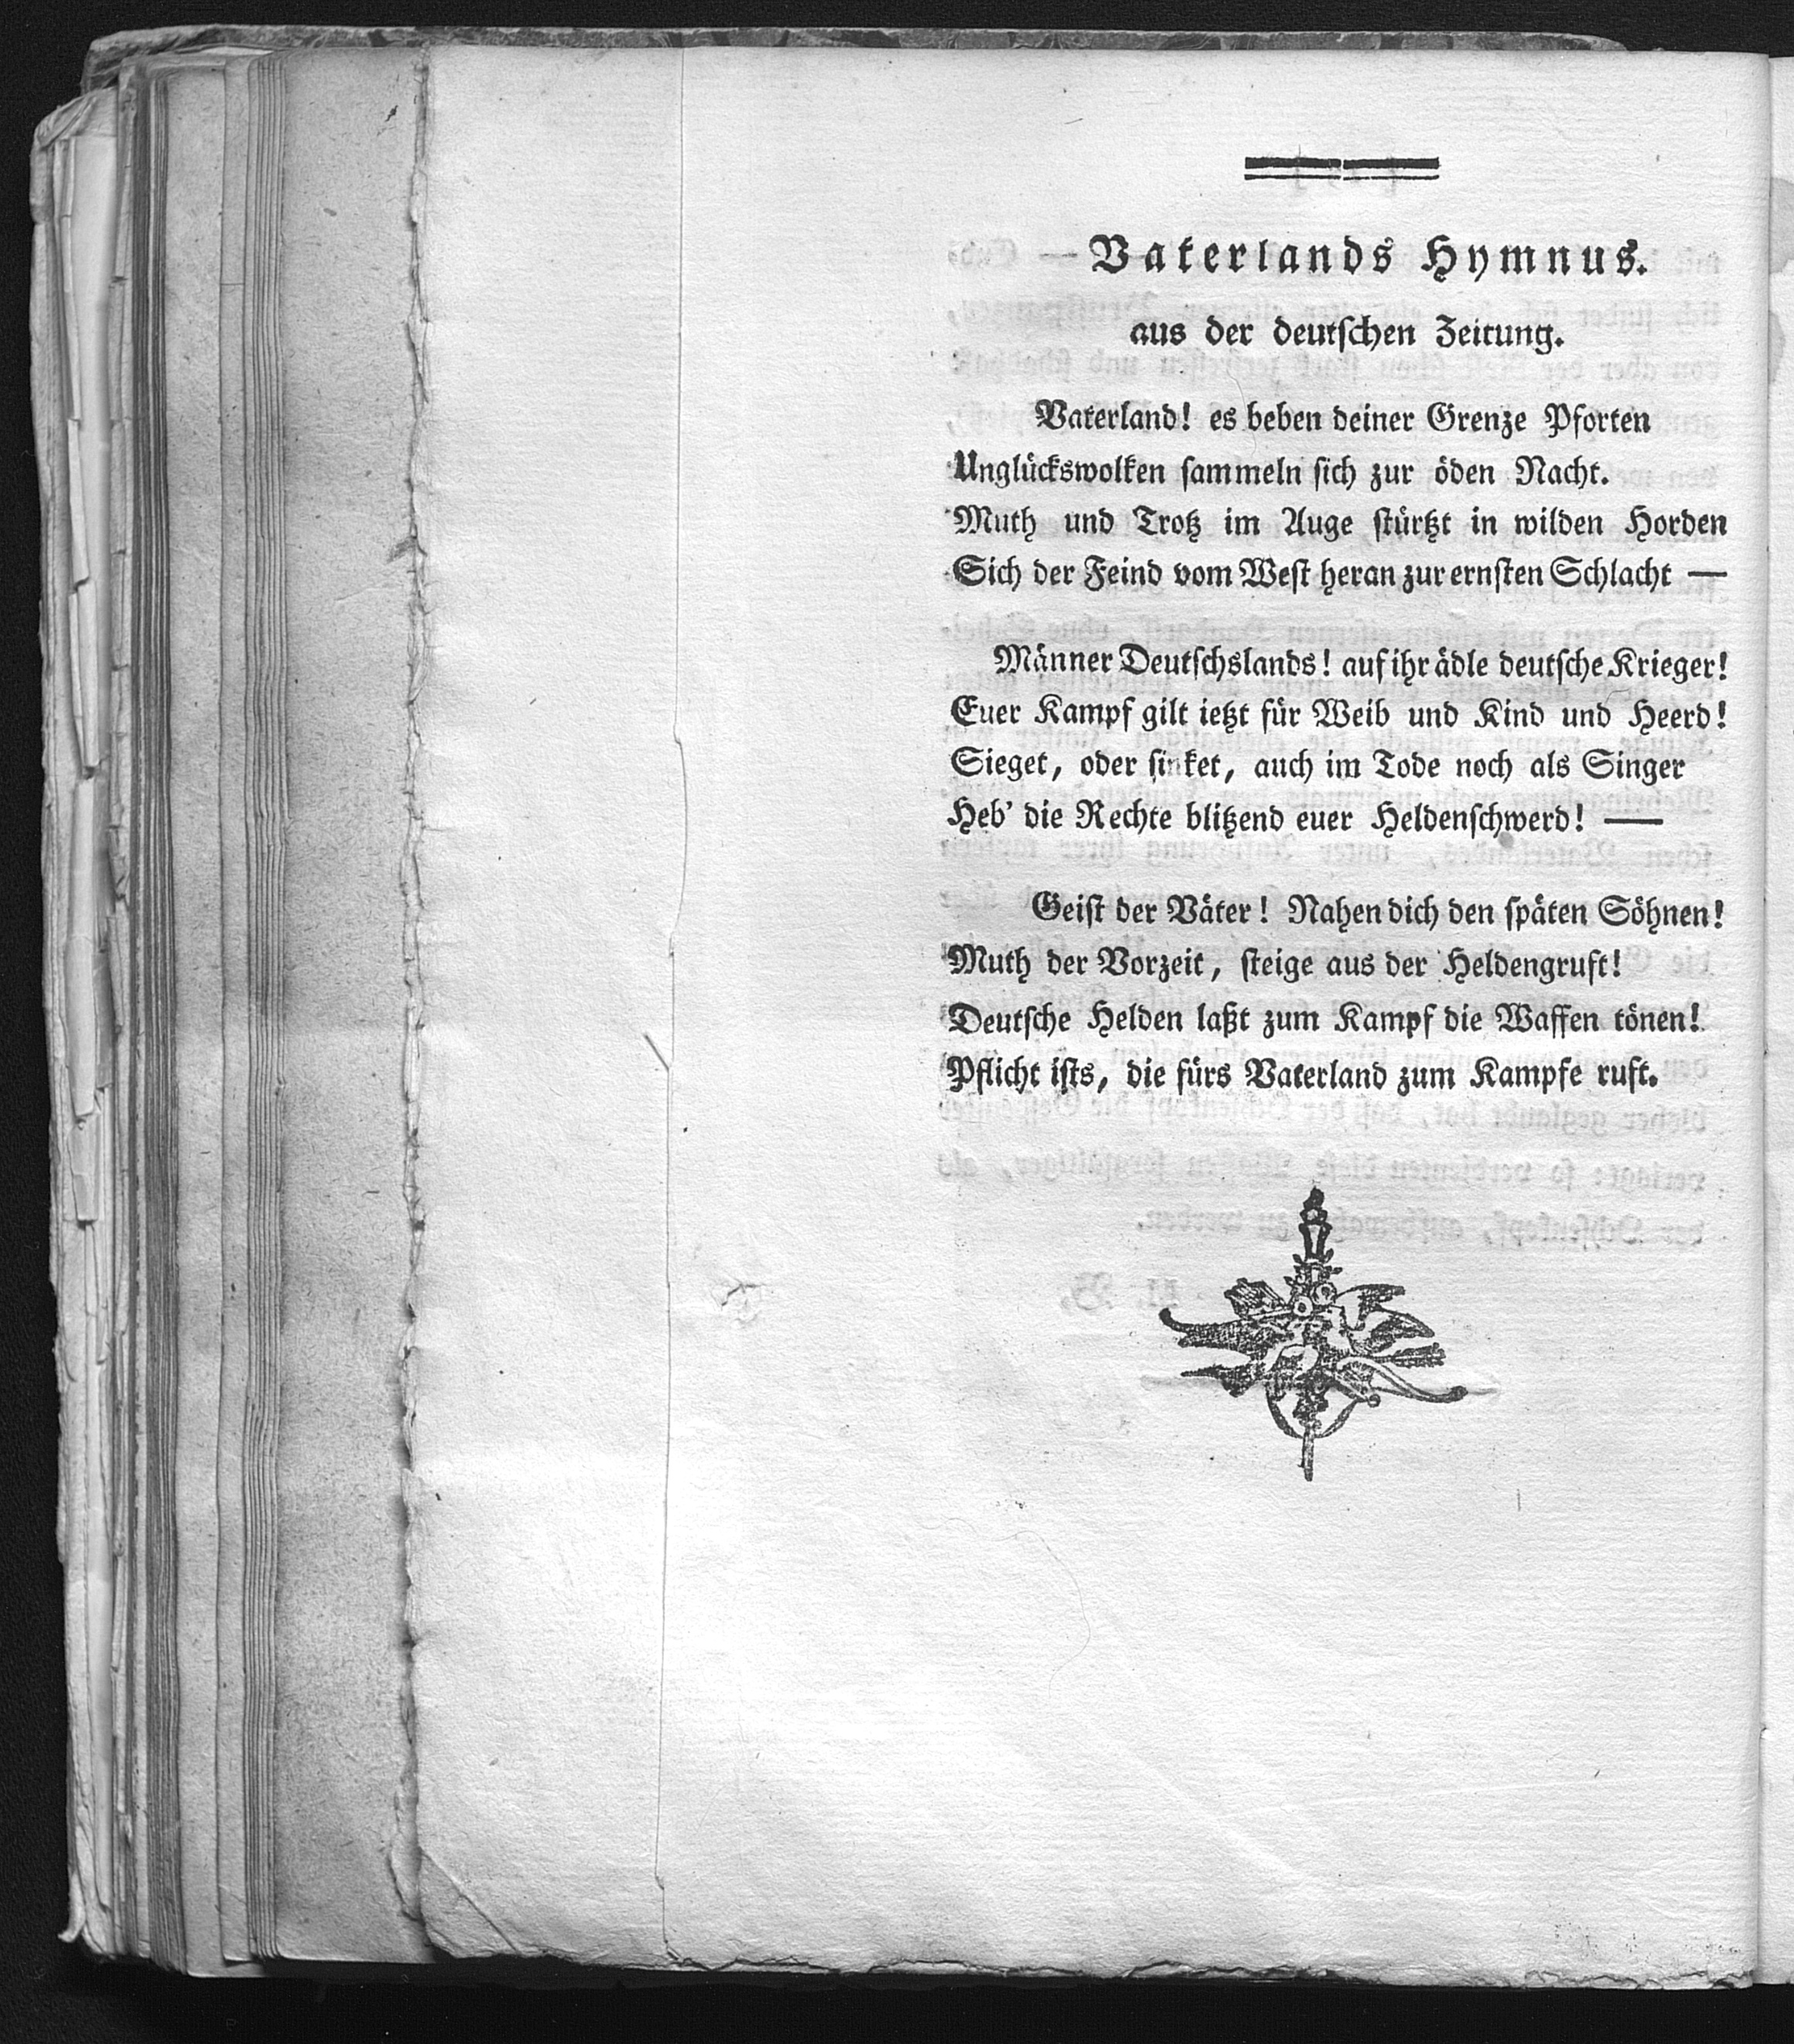 Vaterlands Hymnus.
aus der deutschen Zeitung.
Vaterland! es beben deiner Grenze Pforten
Unglückswolken sammeln sich zur öden Nacht.
Muth und Trotz im Auge stürtzt in wilden Horden
Sich der Feind vom West heran zur ernsten Schlacht —
Männer Deutschslands! auf ihr ädle deutsche Krieger!
Euer Kampf gilt ietzt für Weib und Kind und Heerd!
Sieget, oder sinket, auch im Tode noch als Singer
Heb' die Rechte blitzend euer Heldenschwerd! —
Geist der Väter! Nahen dich den späten Söhnen!
Muth der Vorzeit, steige aus der Heldengruft!
Deutsche Helden laßt zum Kampf die Waffen tönen!
Pflicht ists, die fürs Vaterland zum Kampfe ruft.